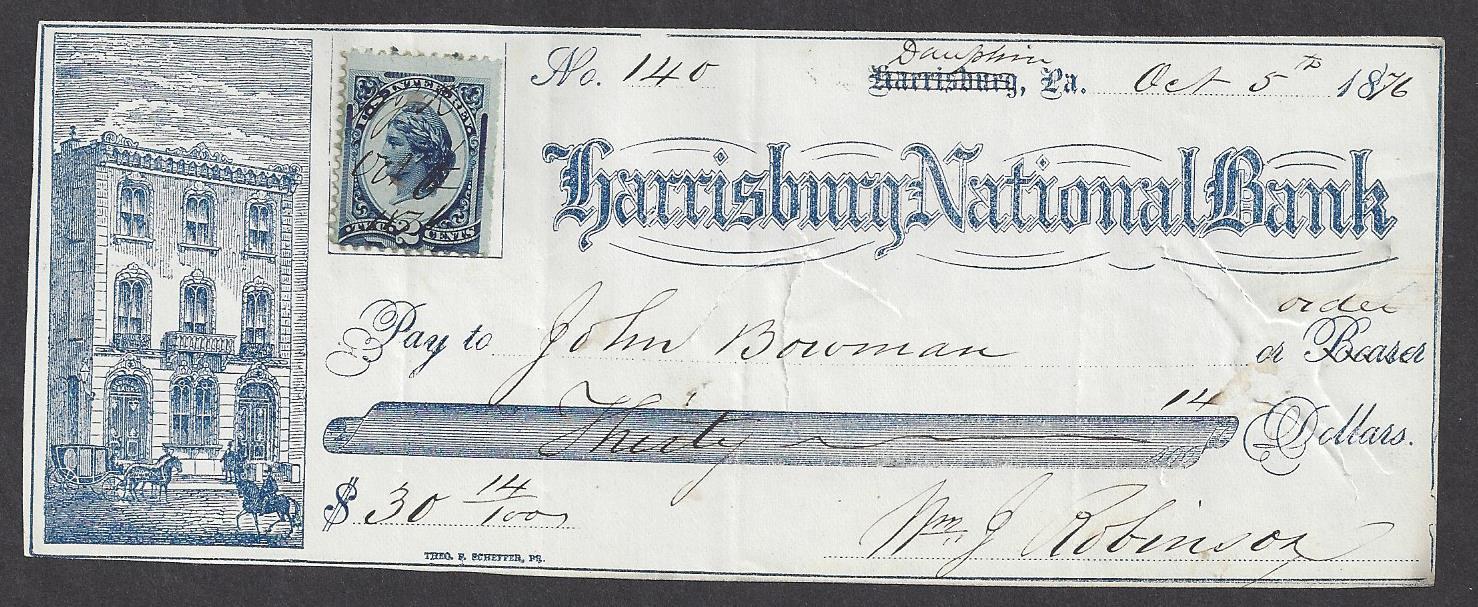 No. 140
Dauphin
Harrisburg, Pa. Oct 5th 1876
U.S. INTER. REV.
TWO 2 CENTS
Harrisburg National Bank
order
Pay to John Bowman or Bearer
Thirty 14/100 Dollars.
$30 14/100
Wm J Robinson
THEO. F. SCHEFFER, PR.